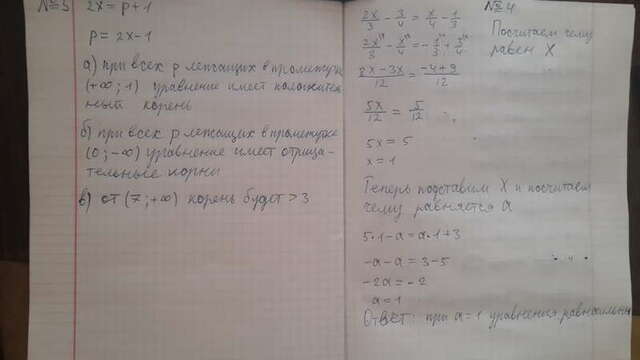 №5 2x = p+1
p = 2x-1
а) при всех p лежащих в промежутке
(+∞; 1) уравнение имеет положитель
ный корень
б) при всех p лежащих в промежутке
(0; -∞) уравнение имеет отрица-
тельные корни
в) от (7; +∞) корень будет > 3
№4
2x/3 - 3/4 = x/4 - 1/3
Посчитаем чему
равен X
2x/3 - x/4 = -1/3 + 3/4
8x-3x/12 = -4+9/12
5x/12 = 5/12
5x = 5
x = 1
Теперь подставим X и посчитаем
чему равняется a
5·1-a = a·1+3
-a-a = 3-5
-2a = -2
a = 1
Ответ: при a=1 уравнения равносильны